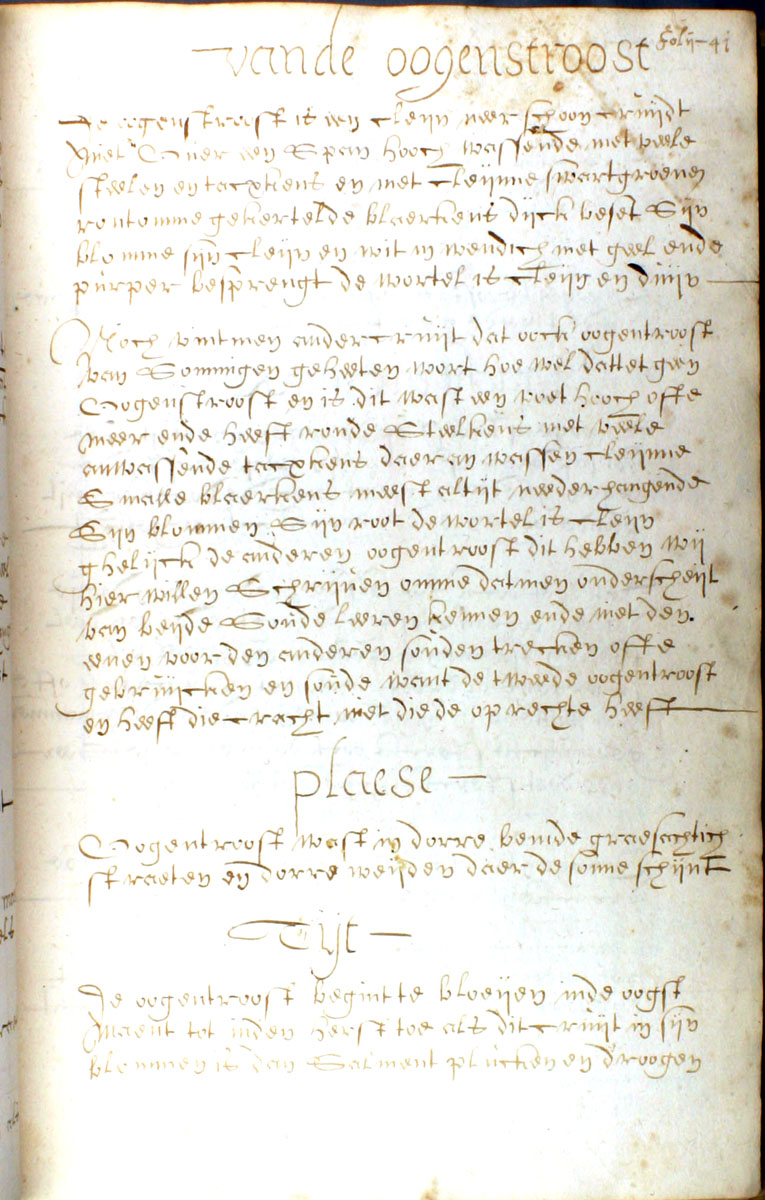 vande oogenstroost foly 41
De oogenstroost is een cleijn neer schoon cruijdt
Met Over een Span hooch wassende met veele
steelen en tacxkens en met cleijnne swartgroenen
rontomme gekertelde blaerkens dijck beset Sijn
blomme sijn cleijn en wit in wendich met geel ende
purper besprengt de wortel is cleijn en duijn
Noch vintmen ander cruijt dat oock oogentroost
van Sommigen geheeten wort hoe wel dattet geen
Oogenstroost en is dit wast een voet hooch ofte
meer ende heeft ronde Steelkens met veele
anwassende tacxkens daer an wassen cleijnne
Smalle blaerkens meest altijt neederhangende
Sijn blommen Sijn root de wortel is cleijn
ghelijck de anderen oogentroost dit hebben wij
hier willen Schrijven omme datmen onderscheijt
van beijde Soude leeren kennen ende met den
eenen voor den anderen souden trecken ofte
gebruijcken en soude want de tweede oogentroost
en heeft die cracht niet die de oprechte heeft
plaese
Oogentroost wast in dorre bemde graesachtich
straeten en dorre weijden daer de sonne schijnt
Tijt
De oogentroost begint te bloeijen inde oogst
Maent tot inden herfst toe als dit cruijt in sijn
blommen is dan Salment plucken en droogen